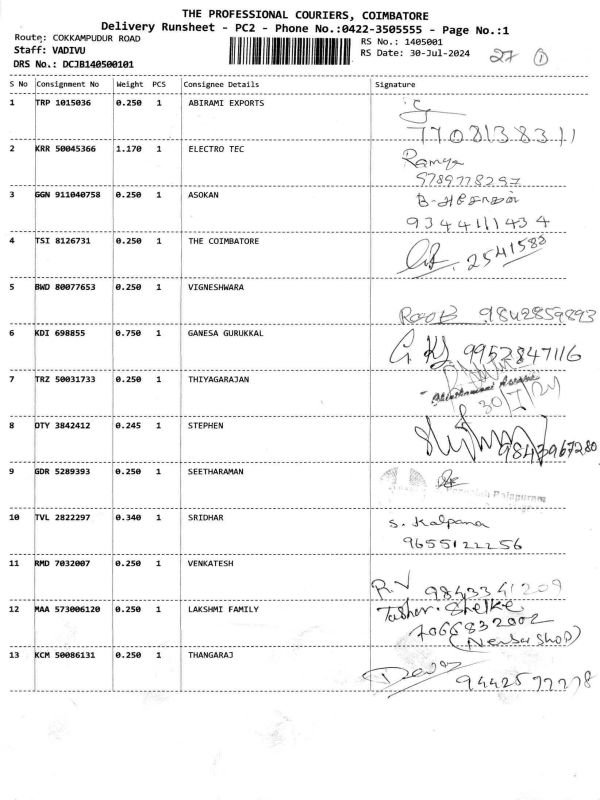 THE PROFESSIONAL COURIERS, COIMBATORE
Delivery Runsheet - PC2 - Phone No.:0422-3505555 - Page No.:1
Route: COKKAMPUDUR ROAD RS No.: 1405001
Staff: VADIVU RS Date: 30-Jul-2024 27 1
DRS No.: DCJB140500101
S No Consignment No Weight PCS Consignee Details Signature
1 TRP 1015036 0.250 1 ABIRAMI EXPORTS
7708138311
2 KRR 50045366 1.170 1 ELECTRO TEC Ramya
9789778297
3 GGN 911040758 0.250 1 ASOKAN B-அசோகன்
9344111434
4 TSI 8126731 0.250 1 THE COIMBATORE
2541588
5 BWD 80077653 0.250 1 VIGNESHWARA
9842859893
6 KDI 698855 0.750 1 GANESA GURUKKAL
9952847116
7 TRZ 50031733 0.250 1 THIYAGARAJAN
30/7/24
8 OTY 3842412 0.245 1 STEPHEN
9843967280
9 GDR 5289393 0.250 1 SEETHARAMAN
10 TVL 2822297 0.340 1 SRIDHAR S. Kalpana
9655122256
11 RMD 7032007 0.250 1 VENKATESH
R.V 9843341209
12 MAA 573006120 0.250 1 LAKSHMI FAMILY Tushar. Shelke
7066832002
13 KCM 50086131 0.250 1 THANGARAJ
9442577778